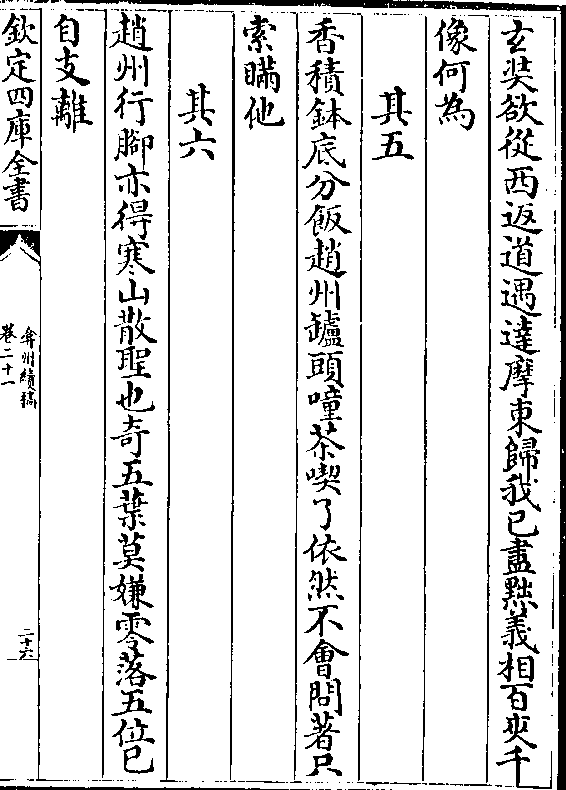 玄奘欲從西返道遇達摩東歸我已盡黜義相百夾千
像何為
其五
香積鉢底分飯趙州鑪頭噇茶喫了依然不會問著只
索瞞他
其六
趙州行腳亦得寒山散聖也奇五葉莫嫌零落五位已
自支離
欽定四庫全書
弇州續稿
卷二十一
二十六